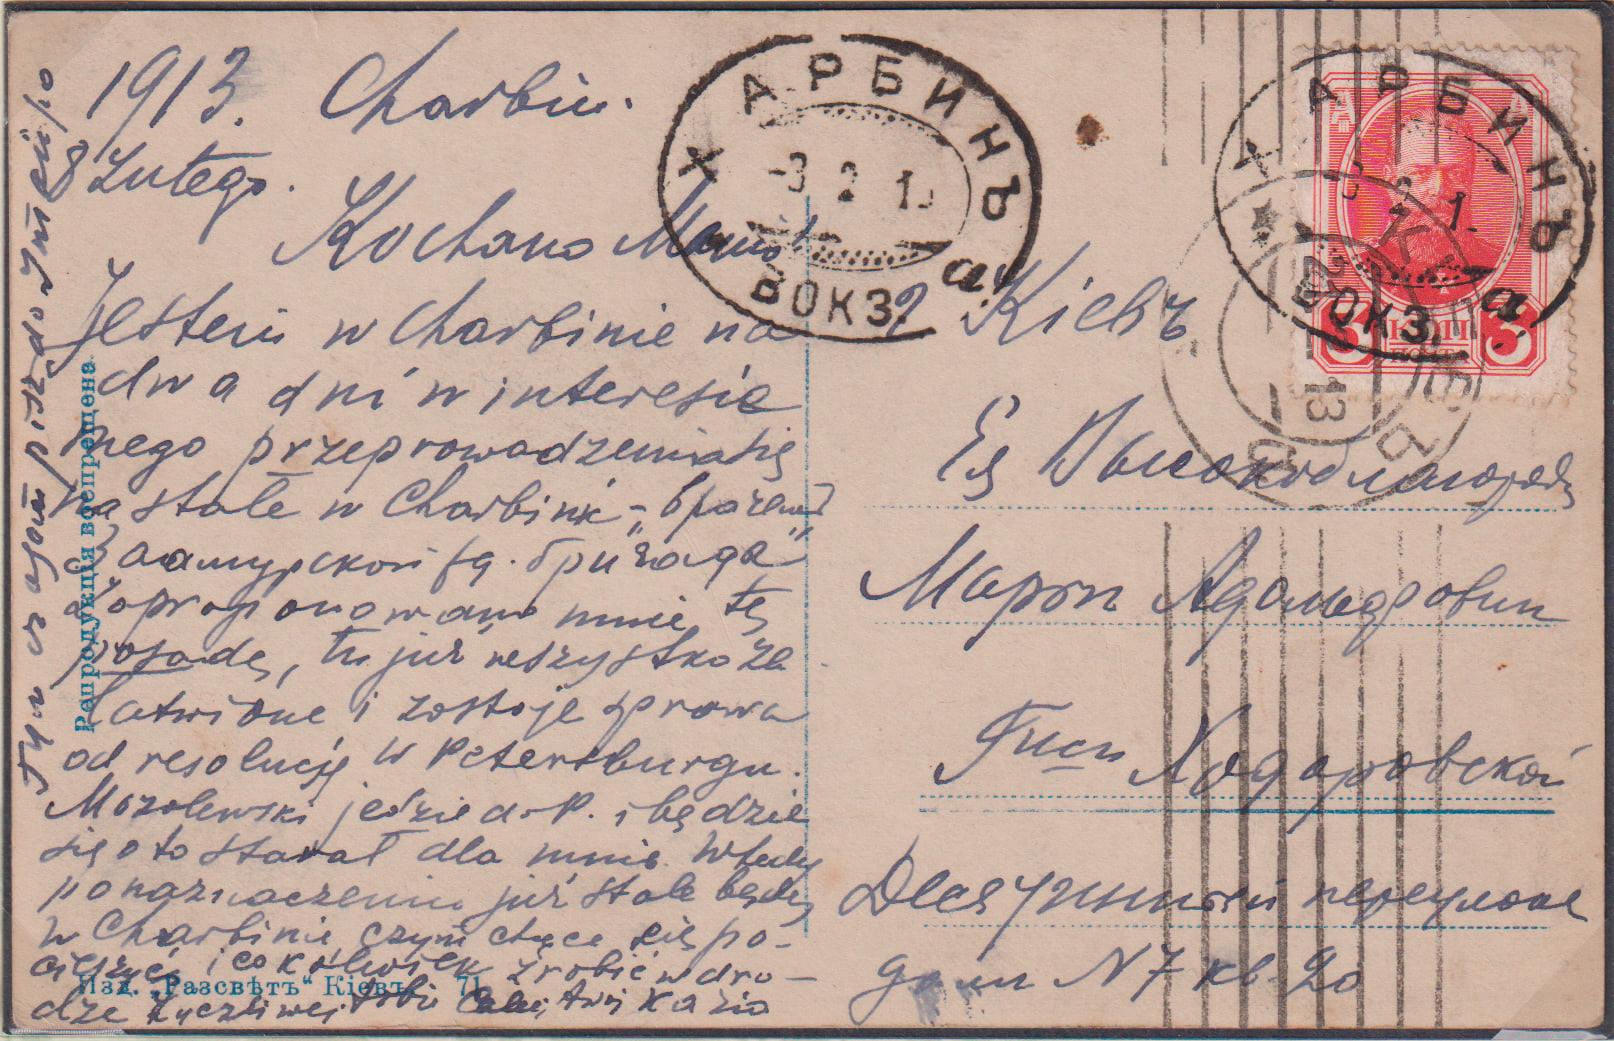 1913. Charbin.
8 Lutego.
Kochana Mamo!
Jestem w Charbinie na
dwa dni w interesie
mego przeprowadzenia się
na stałe w Charbinie -
Заамурской бригада"
zaproponowano mnie tę
posadę, tu już wszystko za
łatwione i zostaje sprawa
od resolucję w Petersburgu.
Mozolewski jedzie do P. i będzie
się o to starał dla mnie. Wtedy
po naznaczeniu już stale będę
w Charbinie, czym chcę się po-
cieszyć i cokolwiek zrobić w dro-
dze życzliwej Tobie
Репродукція воспрещена
Изд. „Разсвѣтъ" Кіевъ. 71
ХАРБИНЪ
-3 2 1
ВОКЗ. а
ХАРБИНЪ
3 2 1
ВОКЗ. а
3 КОП 3
КІЕВЪ
13
г Кіевъ
Ея Высокоблагород
Маріи
Ходоровской
переулокъ
домъ N 7 кв 20